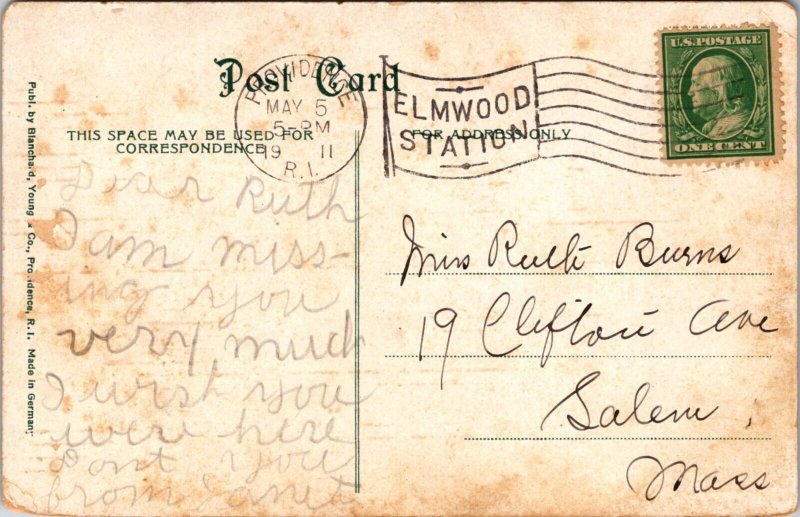 Post Card
THIS SPACE MAY BE USED FOR
CORRESPONDENCE
FOR ADDRESS ONLY
PROVIDENCE
MAY 5
5-PM
19 11
R.I.
ELMWOOD
STATION
U.S. POSTAGE
ONE CENT
Publ. by Blanchard, Young & Co., Providence, R. I. Made in Germany
Dear Ruth
I am miss-
ing you
very much
I wish you
were here
dont you
from Janet
Miss Ruth Burns
19 Clifton Ave
Salem,
Mass